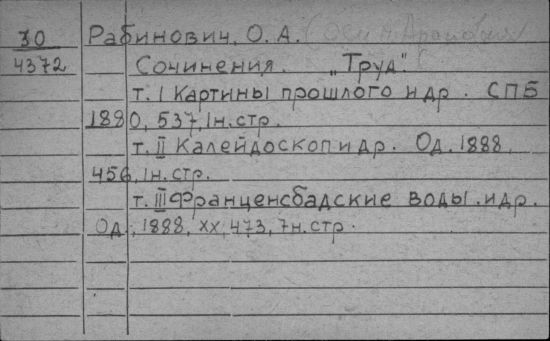 30 Рабинович, О. А. (Осип Аронович)
4372 Сочинения. „Труд".
т. I Картины прошлого и др. СПБ
1880, 537, 1н.стр.
т. II Калейдоскоп и др. Од. 1888,
456, 1н.стр.
т. III Франценсбадские воды. и др.
Од., 1888, XX, 473, 7н.стр.